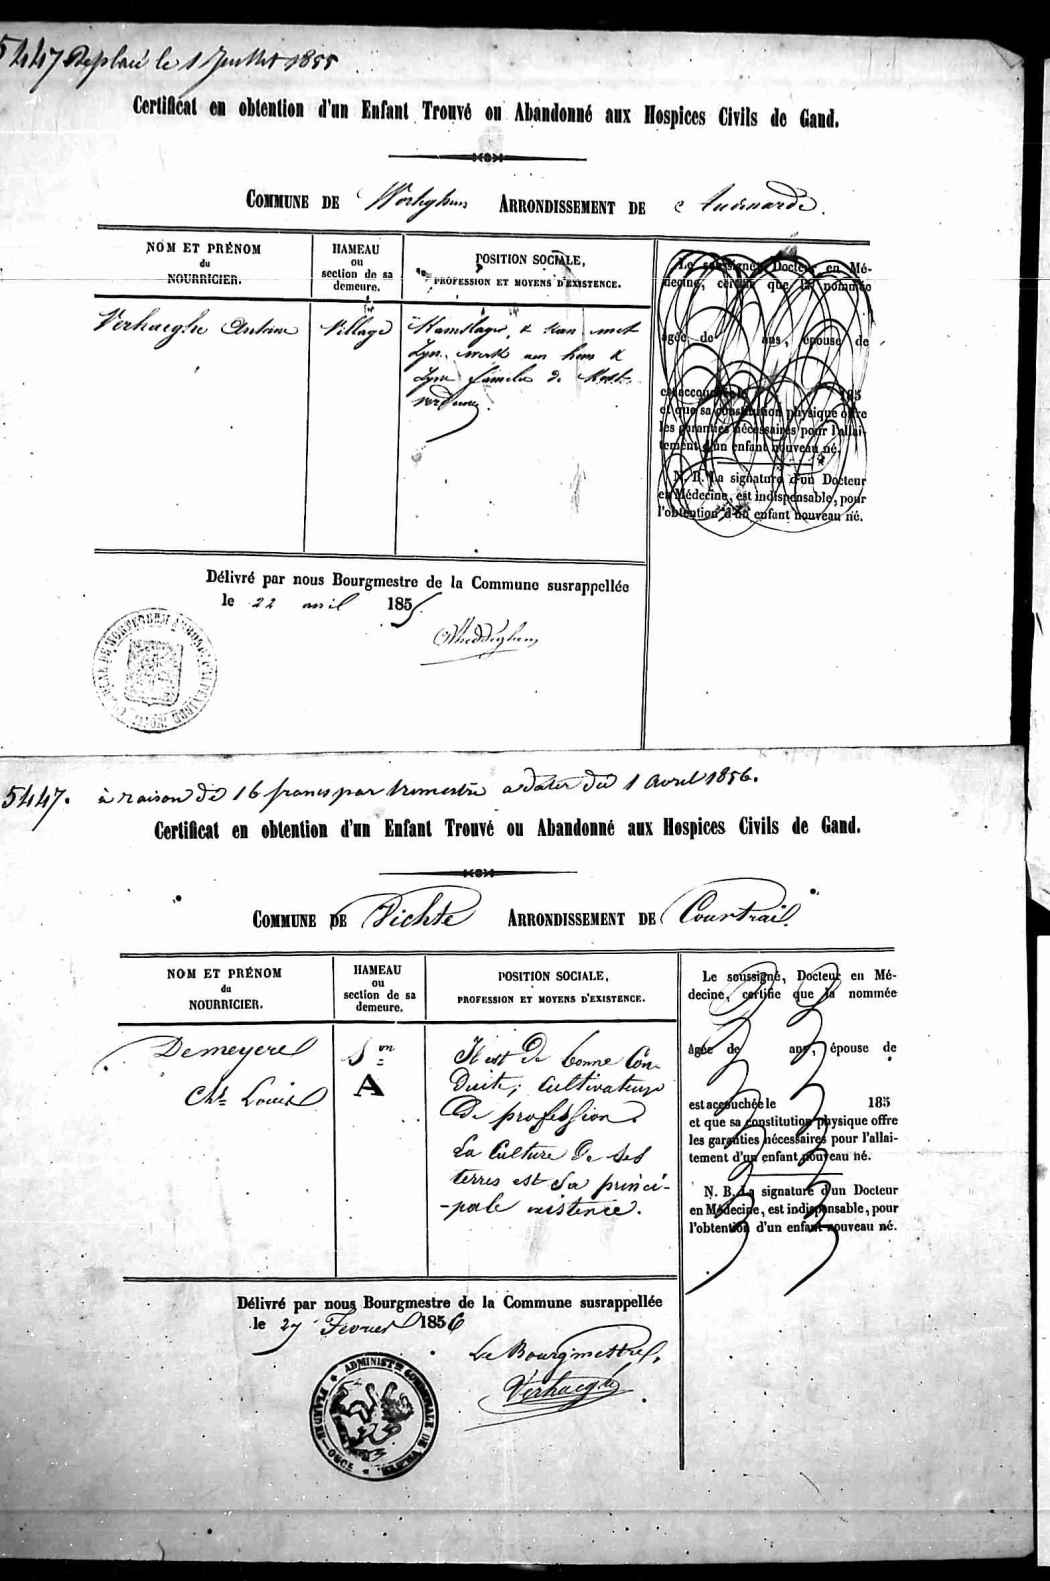 5447 Replacé le 1 Juillet 1855
Certificat en obtention d'un Enfant Trouvé ou Abandonné aux Hospices Civils de Gand.
COMMUNE DE ARRONDISSEMENT DE Audenarde.
NOM ET PRÉNOM
du
NOURRICIER.
HAMEAU
ou
section de sa
demeure.
POSITION SOCIALE,
PROFESSION ET MOYENS D'EXISTENCE.
Verhaeghe Antoine
Village
kan met
zyn werk aen hem &
zyne familie
Le soussigné, Docteur en Mé-
decine, certifie que la nommée
âgée de ans, épouse de
est accouchée le 185
et que sa constitution physique offre
les garanties nécessaires pour l'allai-
tement d'un enfant nouveau né.
N. B. La signature d'un Docteur
en Médecine, est indispensable, pour
l'obtention d'un enfant nouveau né.
Délivré par nous Bourgmestre de la Commune susrappellée
le 22 avril 1855.
5447. à raison de 16 francs par trimestre a dater du 1 Avril 1856.
Certificat en obtention d'un Enfant Trouvé ou Abandonné aux Hospices Civils de Gand.
COMMUNE DE Vichte ARRONDISSEMENT DE Courtrai.
NOM ET PRÉNOM
du
NOURRICIER.
HAMEAU
ou
section de sa
demeure.
POSITION SOCIALE,
PROFESSION ET MOYENS D'EXISTENCE.
Demeyere
Chs Louis
Son
A
Il est de bonne Con-
duite; Cultivateur
de profession.
La Culture de ses
terres est sa princi-
-pale existence.
Le soussigné, Docteur en Mé-
decine, certifie que la nommée
âgée de ans, épouse de
est accouchée le 185
et que sa constitution physique offre
les garanties nécessaires pour l'allai-
tement d'un enfant nouveau né.
N. B. La signature d'un Docteur
en Médecine, est indispensable, pour
l'obtention d'un enfant nouveau né.
Délivré par nous Bourgmestre de la Commune susrappellée
le 27 Fevrier 1856
Le Bourgmestre,
Verhaeghe
ADMINISTN COMMUNALE DE VICHTE FLANDRE OCCID